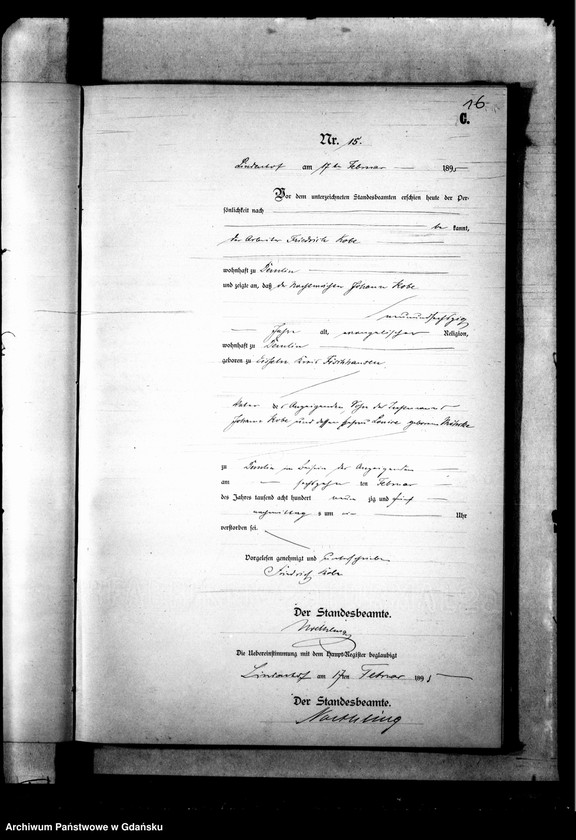 16.
C.
Nr. 15.
Lindenhof am 17ten Februar 1895
Vor dem unterzeichneten Standesbeamten erschien heute der Per-
sönlichkeit nach
be kannt,
der Arbeiter Friedrich Kobe
wohnhaft zu
und zeigte an, daß der Nachtwächter Johann Kobe
neunundsechszig
Jahre alt, evangelischer Religion,
wohnhaft zu
geboren zu Kreis Fischhausen
Vater des Anzeigenden, Sohn des
Johann Kobe und dessen Ehefrau Louise geborene
zu in des Anzeigenden
am sechszehn ten Februar
des Jahres tausend acht hundert neun zig und fünf
nachmittag s um Uhr
verstorben sei.
Vorgelesen genehmigt und unterschrieben
Friedrich Kobe
Der Standesbeamte.
Noetzling
Die Uebereinstimmung mit dem Haupt-Register beglaubigt
Lindenhof am 17ten Februar 1895
Der Standesbeamte.
Noetzling
Archiwum Państwowe w Gdańsku